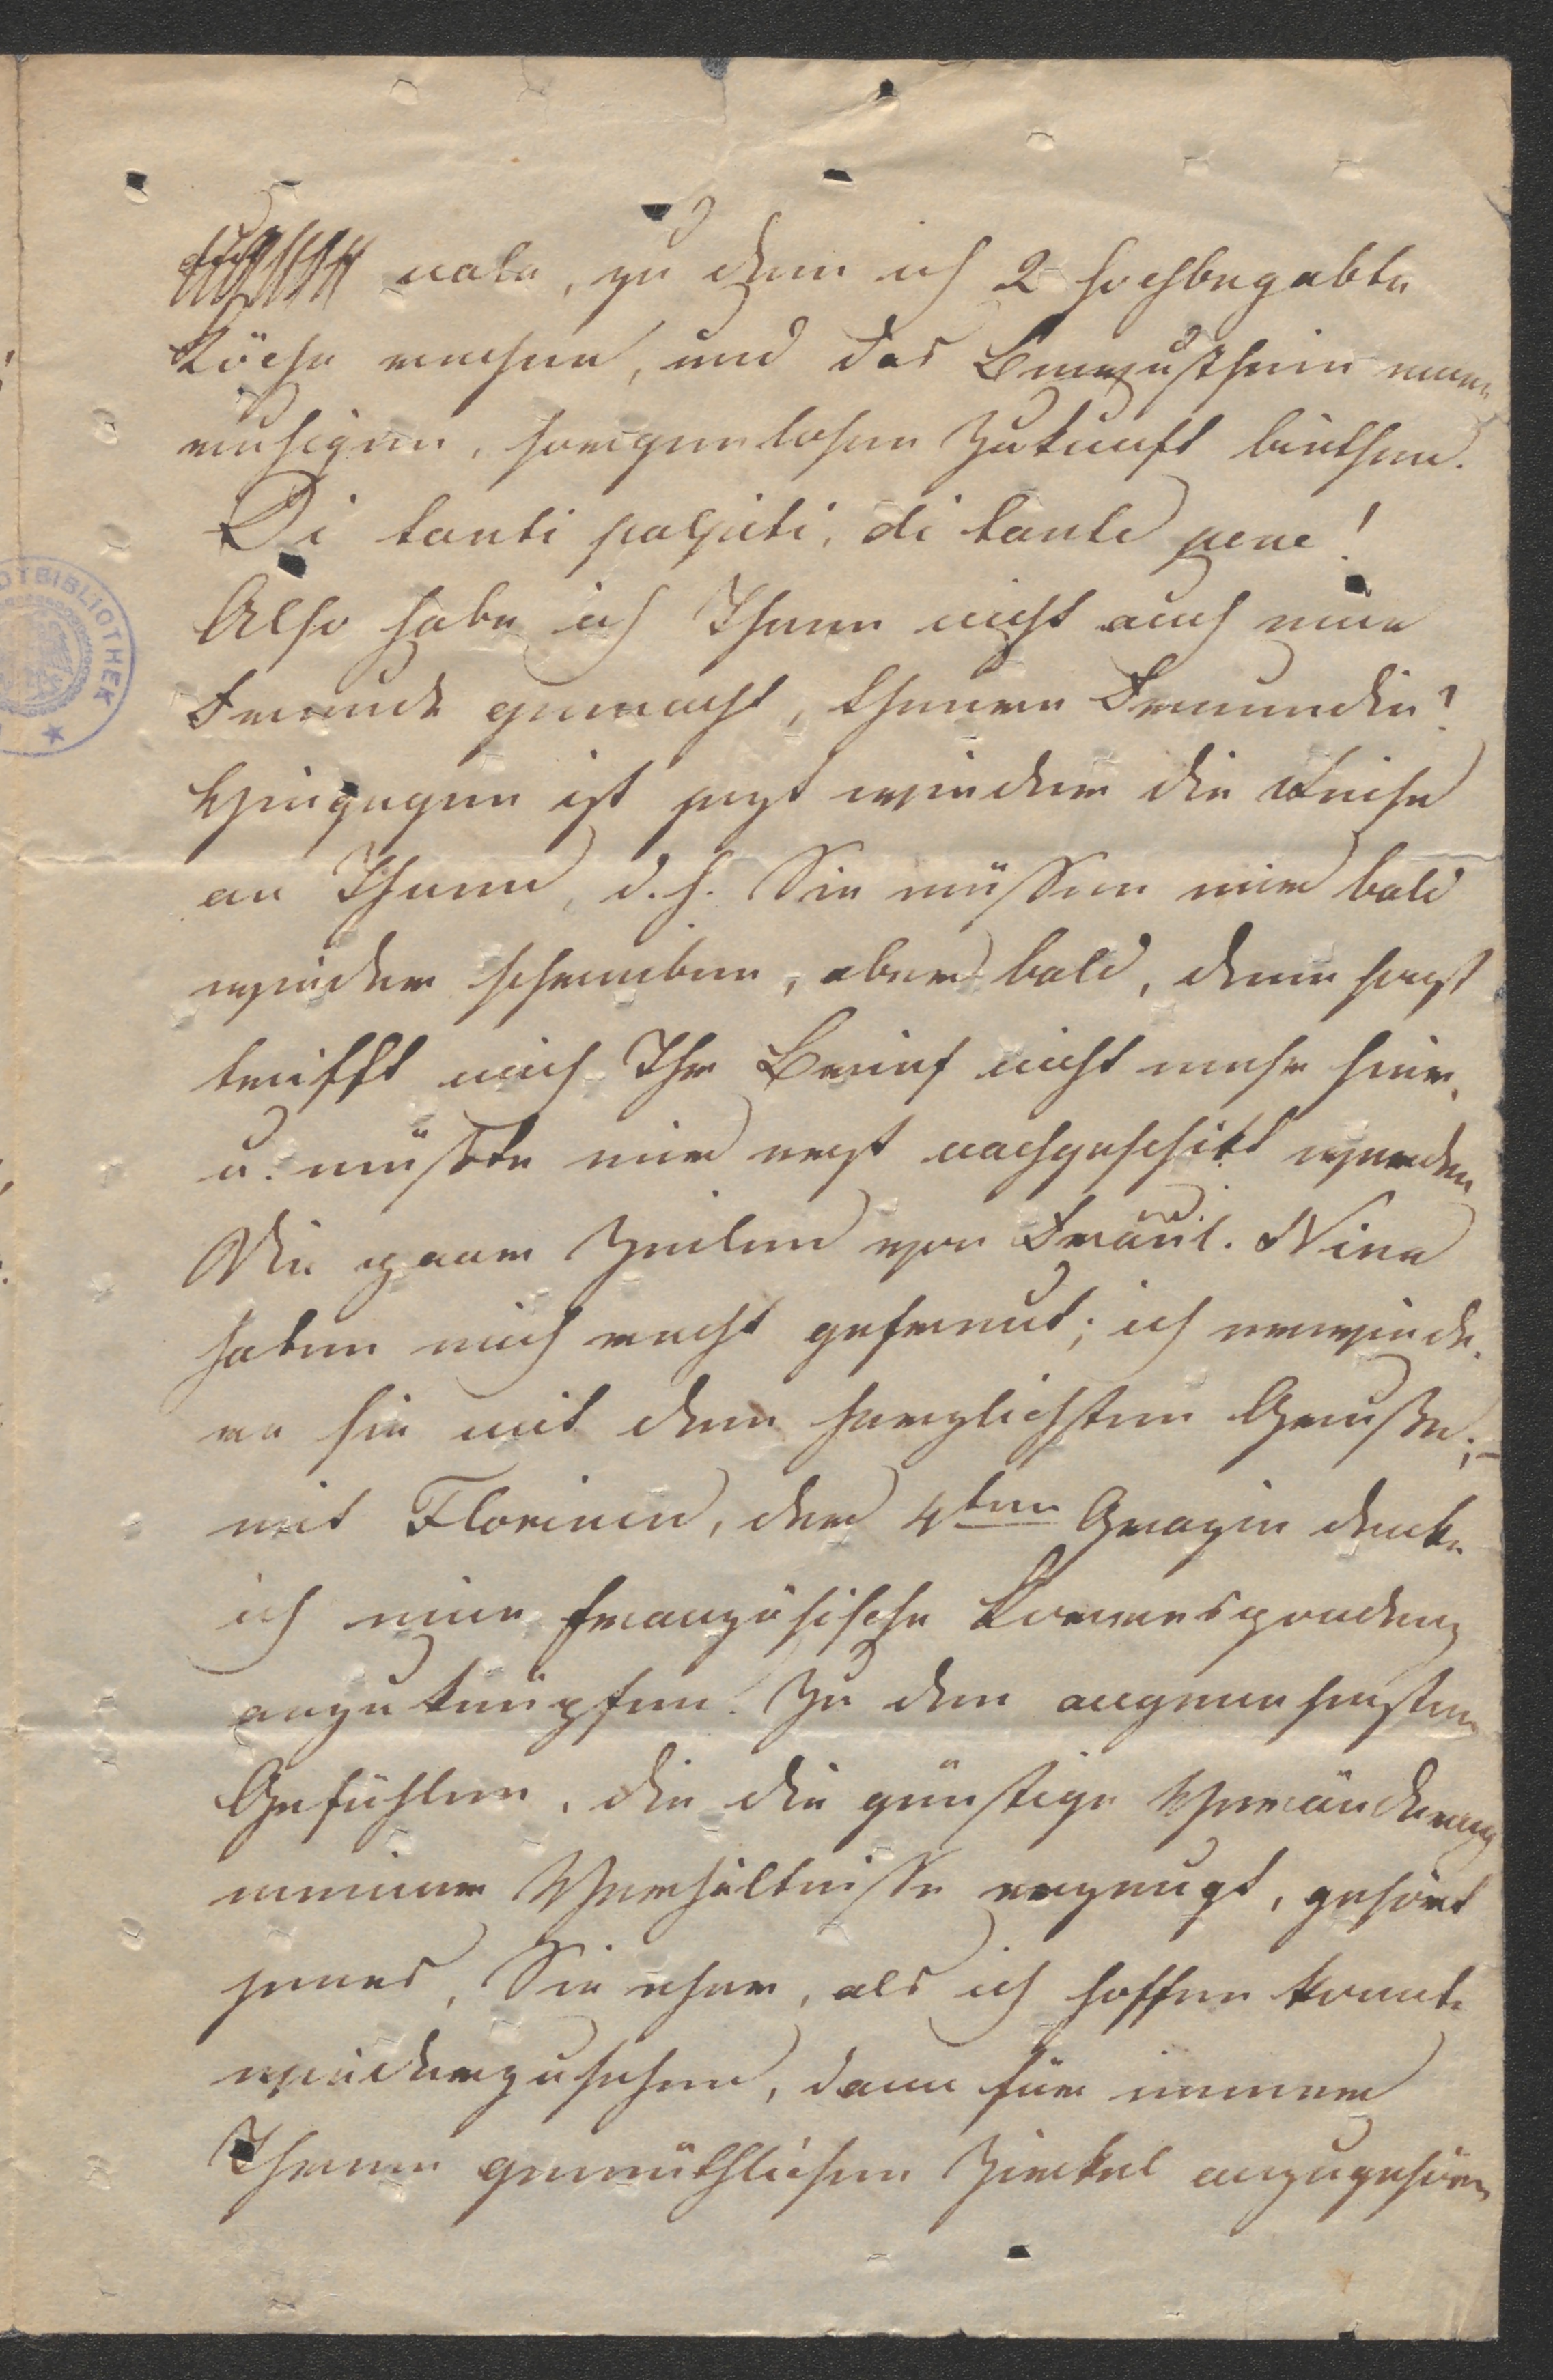 nale, zu dem ich 2 hochbegabte
Köche rechne, und das Bewußtsein einer
ruhigen, sorgenlosen Zukunft biethen.
Di tanti palpiti, di tante pene!
Also habe ich Ihnen nicht auch eine
Freude gemacht, theure Freundin?
Hingegen ist jezt wieder die Reihe
an Ihnen, d. h. Sie müssen mir bald
wieder schreiben, aber bald, denn sonst
trifft mich Ihr Brief nicht mehr hier,
u. müßte mir erst nachgeschikt werden
Die paar Zeilen von Fräul. Nina
haben mich recht gefreut; ich erwiede-
re sie mit dem herzlichsten Gruße;-
mit Florinen, der 4ten Grazin denke
ich eine französische Korrespondenz
anzuknüpfen. Zu den angenehmsten
Gefühlen, die die günstige Veränderung
meiner Verhältnisse erzeugt, gehört
jenes, Sie eher, als ich hoffen konnte
wiederzusehen, dann für immer
Ihrem gemüthlichen Zirkel anzugehören
OTBIBLIOTHEK